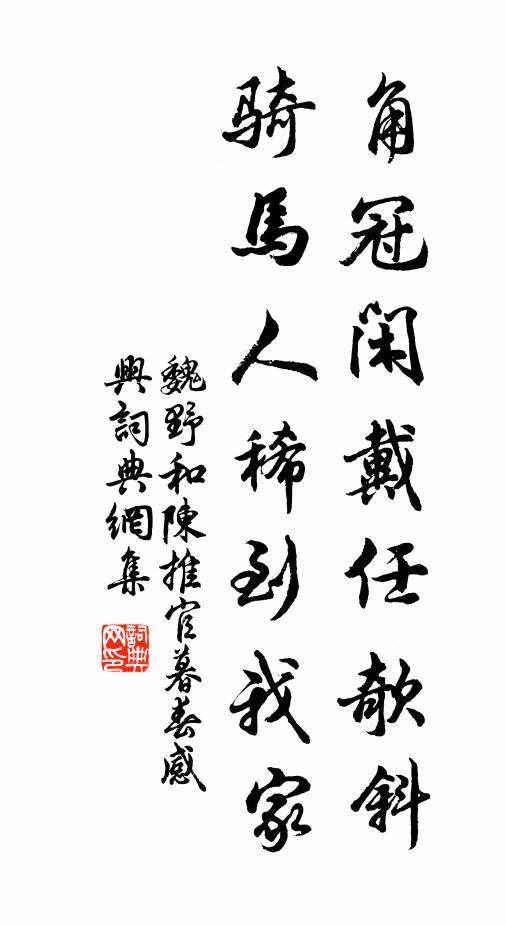 角冠閑戴任欹斜
騎馬人稀到我家
魏野和陳推官暮春感
興詞典網集
詞典
网印